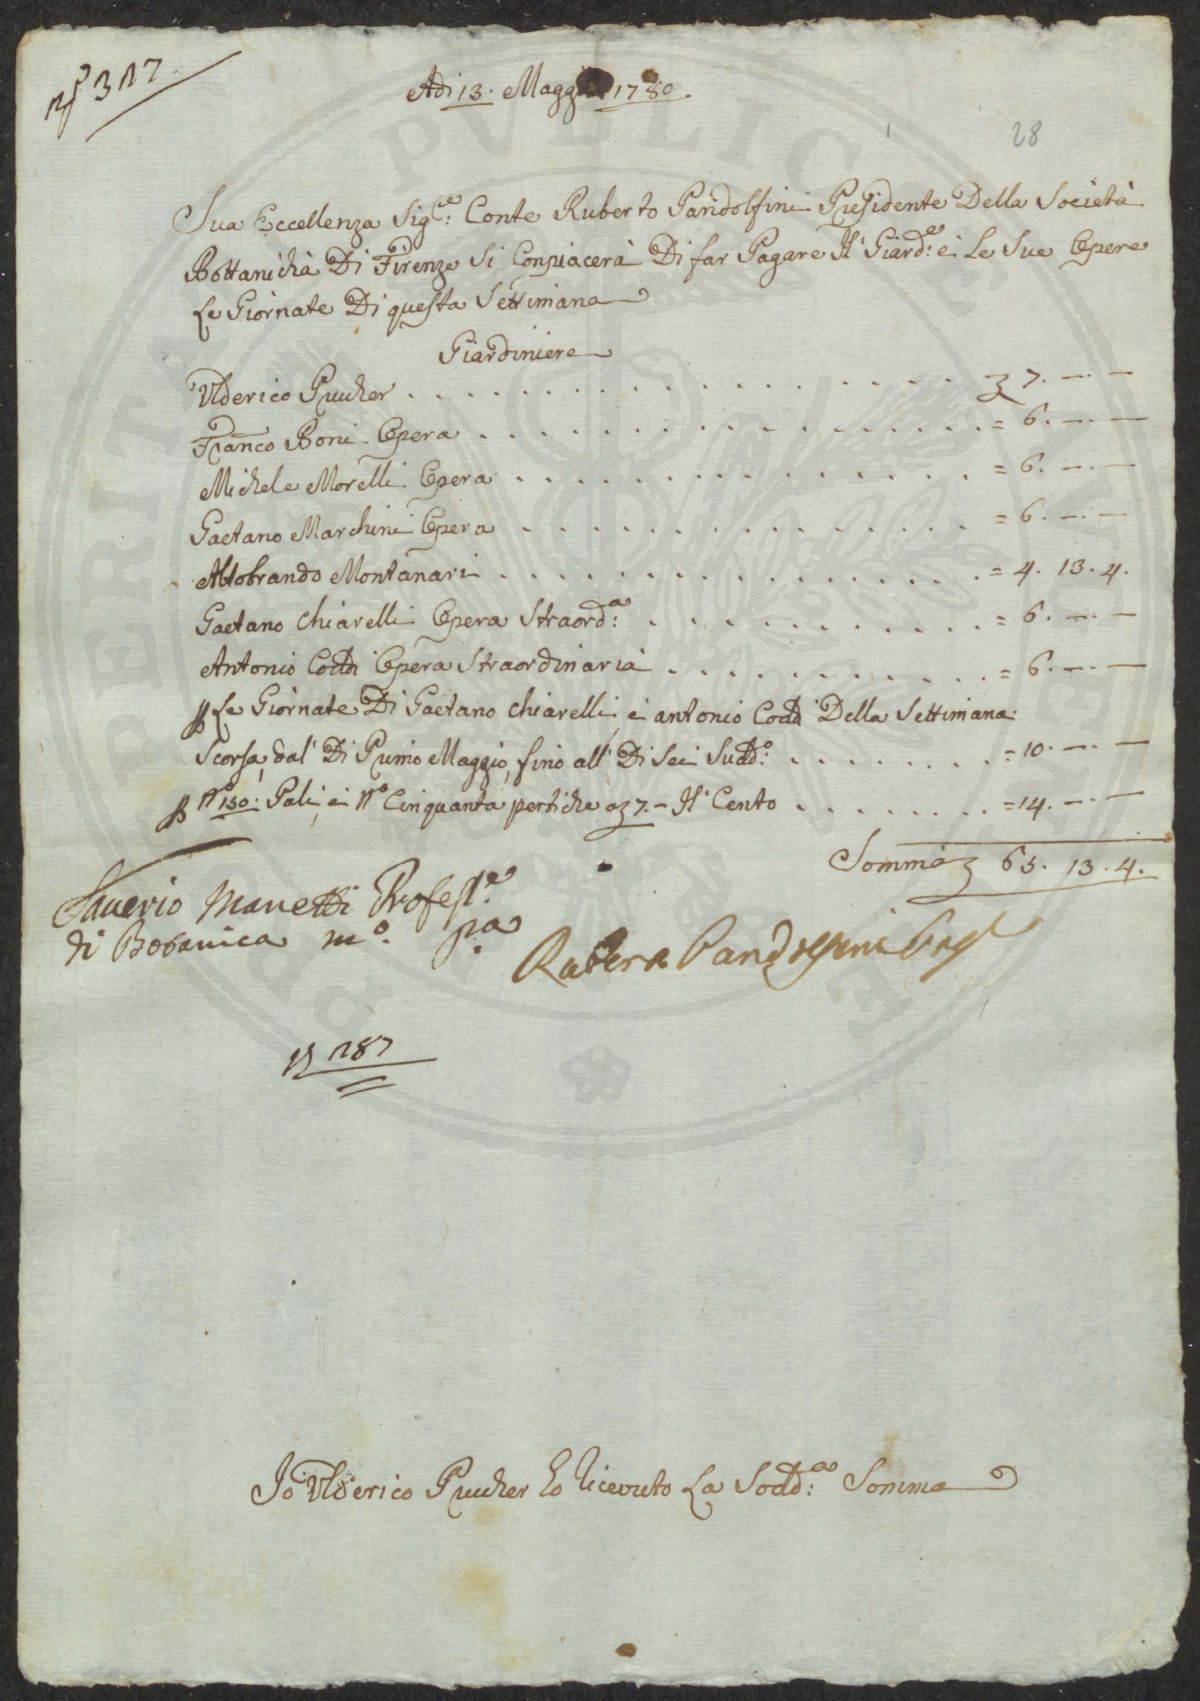 N° 317.
Adi 13. Maggio 1780.
28
Sua Eccellenza Sig.re Conte Ruberto Pandolfini Presidente Della Società
Bottanicha Di Firenze Si Conpiacerà Di far Pagare Il Giard.e e Le Sue Opere
Le Giornate Di questa Settimana
Giardiniere
Ulderico Prucher . . . . . . . . . . . . . . . . . 7. — . —
Franco Boni Opera . . . . . . . . . . . . . . . . = 6. — . —
Michele Morelli Opera . . . . . . . . . . . . . . = 6. — . —
Gaetano Marchini Opera . . . . . . . . . . . . . = 6. — . —
Aldobrando Montanari . . . . . . . . . . . . . . = 4. 13. 4.
Gaetano Chiarelli Opera Straord.a . . . . . . . . . = 6. — . —
Antonio Codi Opera Straordinaria . . . . . . . . . = 6. — . —
p Le Giornate Di Gaetano Chiarelli e antonio Codi Della Settimana
Scorsa, dal' Di Primo Maggio, fino all' Di Sei Sudd.o . . . . . . . = 10. — . —
p N° 150: Pali, e N° Cinquanta pertiche a 7. — Il Cento . . . . . . . = 14. — . —
Somma 65. 13. 4.
Saverio Manetti Profess.e
di Botanica m.o p.a
Ruberto Pandolfini
N 287
PVBLIC
Io Ulderico Prucher ho ricevuto La Sodd.a Somma